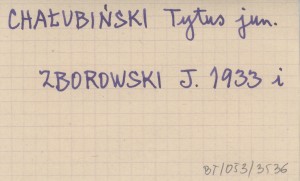 CHAŁUBIŃSKI Tytus jun.
ZBOROWSKI J. 1933 i
BT/053/3536